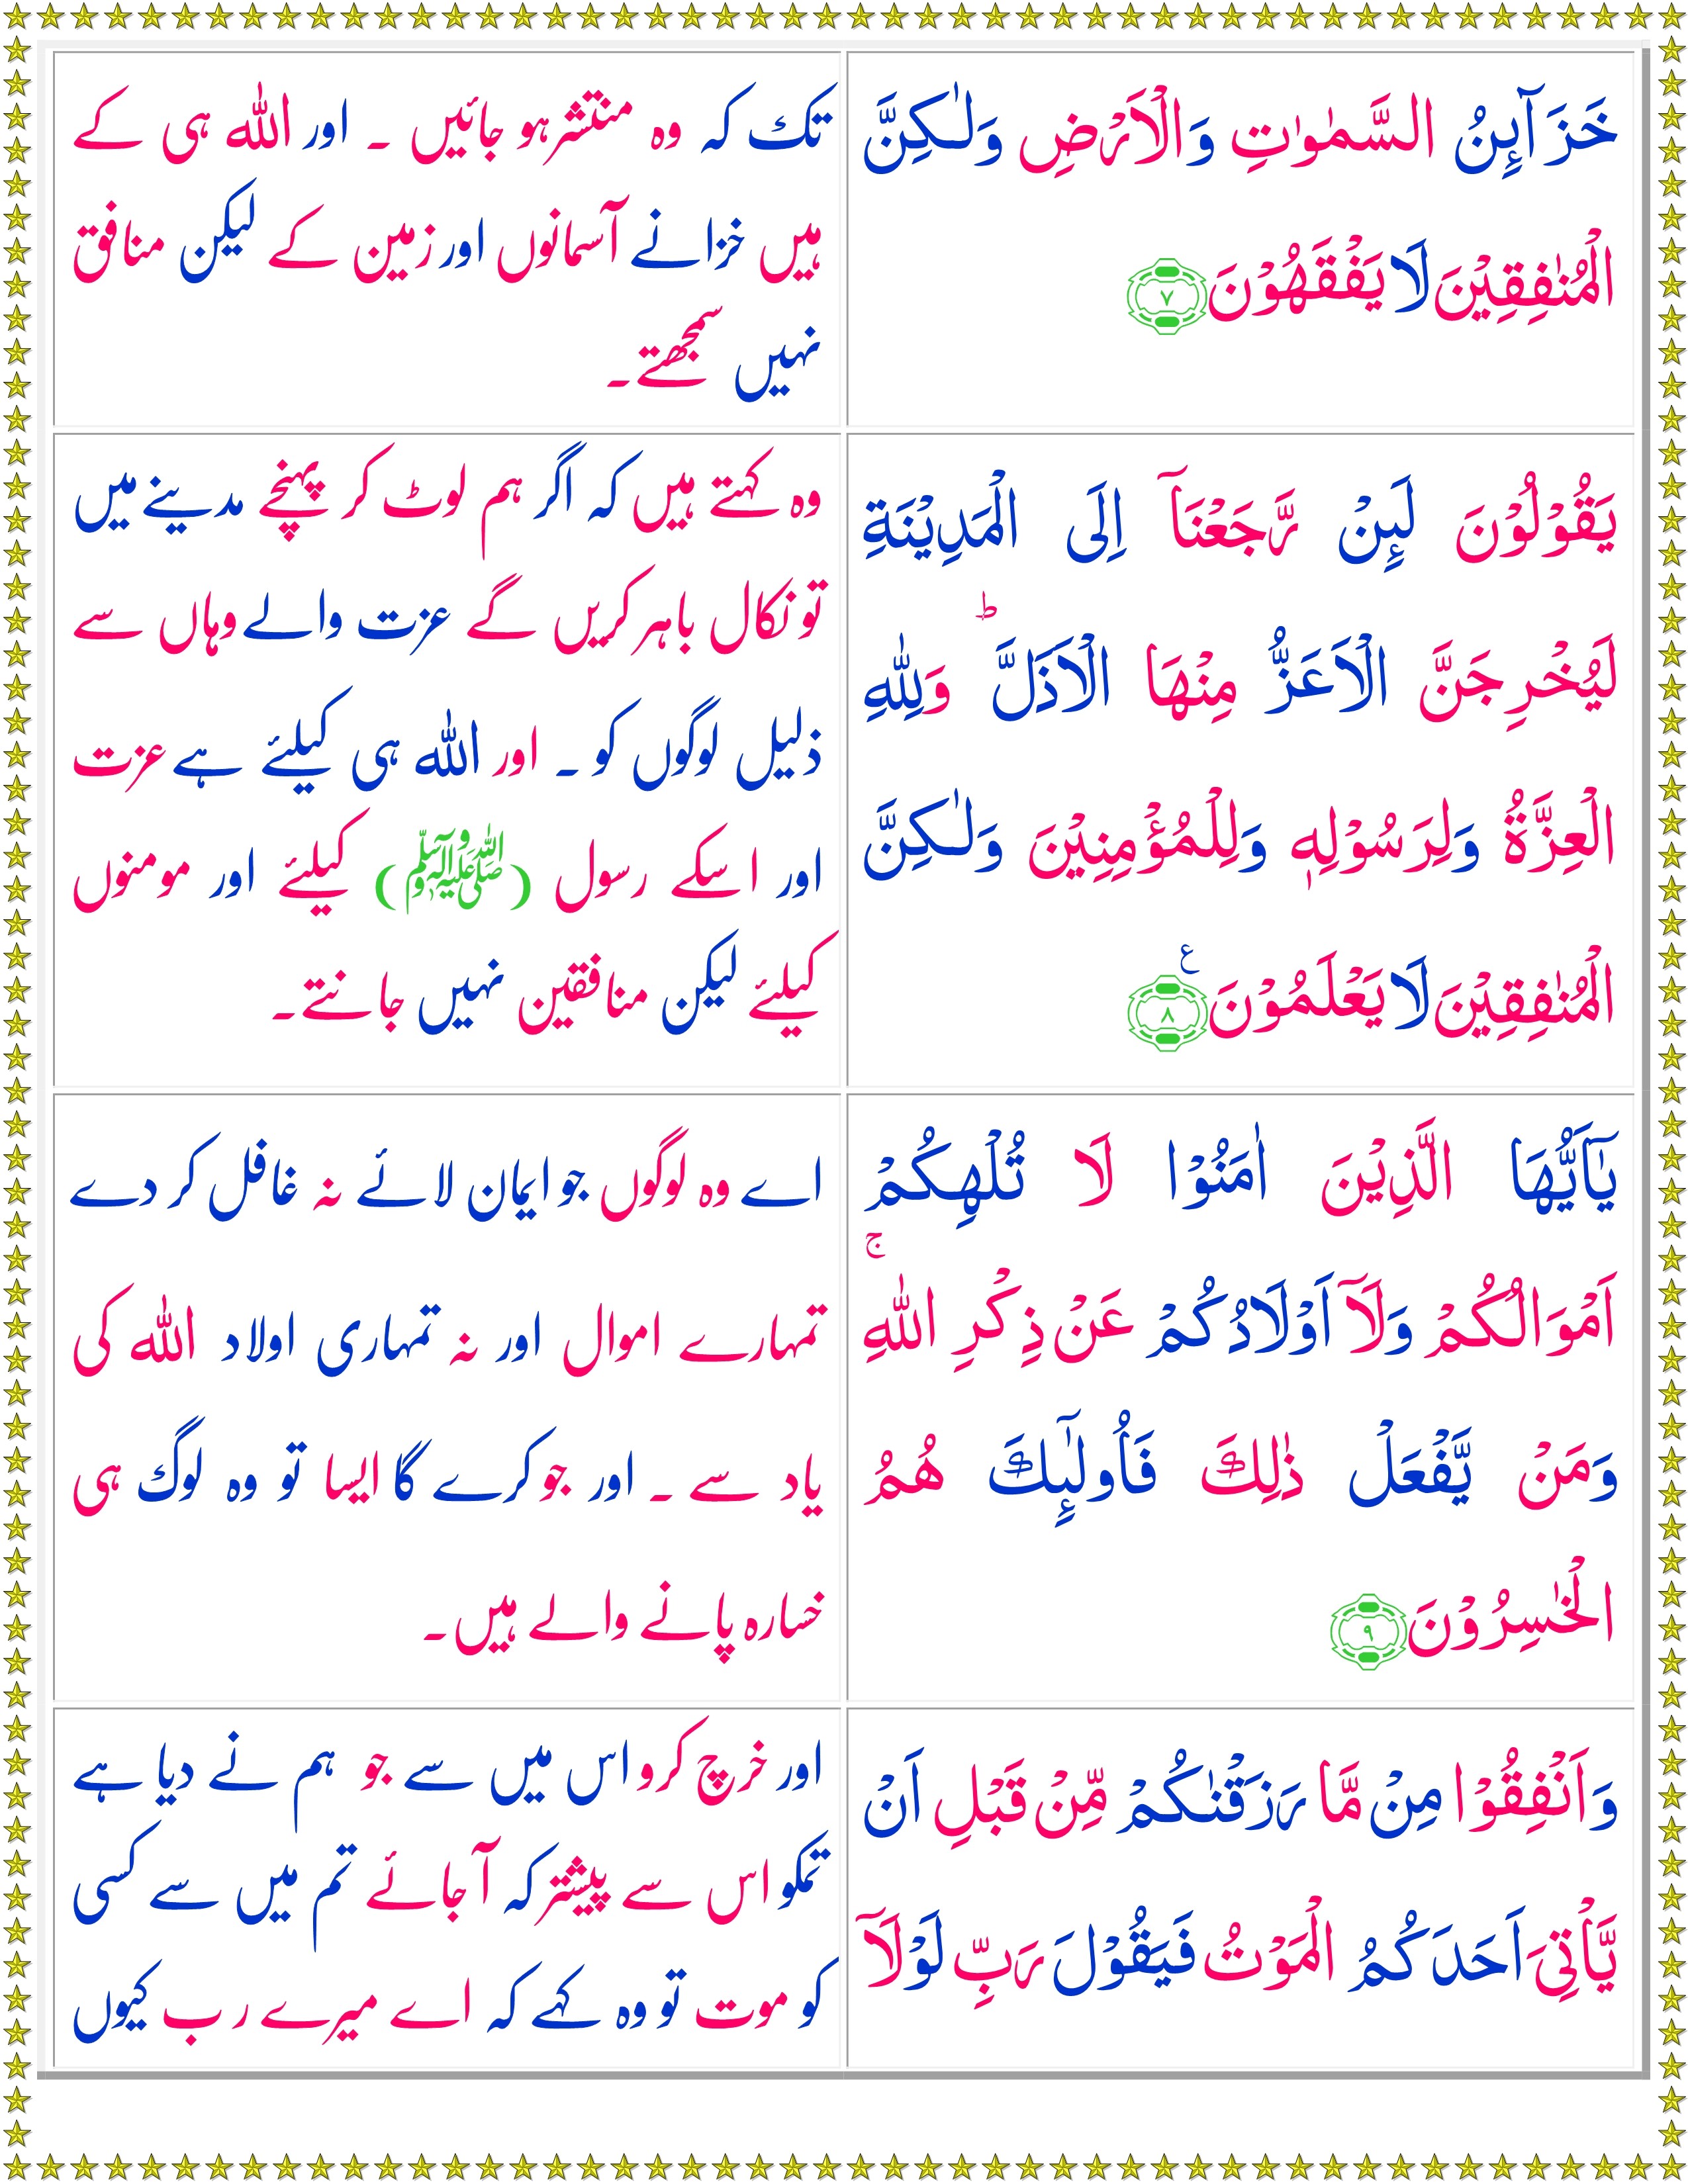 خَزَآئِنُ السَّمٰوٰتِ وَالْاَرْضِ وَلٰكِنَّ
الْمُنٰفِقِيْنَ لَا يَفْقَهُوْنَ ﴿٧﴾
تک کہ وہ منتشر ہو جائیں ۔ اور اللہ ہی کے
ہیں خزانے آسمانوں اور زمین کے لیکن منافق
نہیں سمجھتے۔
يَقُوْلُوْنَ لَئِنْ رَّجَعْنَاۤ اِلَى الْمَدِيْنَةِ
لَيُخْرِجَنَّ الْاَعَزُّ مِنْهَا الْاَذَلَّ ؕ وَلِلّٰهِ
الْعِزَّةُ وَلِرَسُوْلِهٖ وَلِلْمُؤْمِنِيْنَ وَلٰكِنَّ
الْمُنٰفِقِيْنَ لَا يَعْلَمُوْنَ ﴿٨﴾ ع
وہ کہتے ہیں کہ اگر ہم لوٹ کر پہنچے مدینے میں
تو نکال باہر کریں گے عزت والے وہاں سے
ذلیل لوگوں کو ۔ اور اللہ ہی کیلئے ہے عزت
اور اسکے رسول (صلى الله عليه وآله وسلم) کیلئے اور مومنوں
کیلئے لیکن منافقین نہیں جانتے۔
يٰۤاَيُّهَا الَّذِيْنَ اٰمَنُوْا لَا تُلْهِكُمْ
اَمْوَالُكُمْ وَلَاۤ اَوْلَادُكُمْ عَنْ ذِكْرِ اللّٰهِ ۚ
وَمَنْ يَّفْعَلْ ذٰلِكَ فَاُولٰٓئِكَ هُمُ
الْخٰسِرُوْنَ ﴿٩﴾
اے وہ لوگوں جو ایمان لائے نہ غافل کر دے
تمہارے اموال اور نہ تمہاری اولاد اللہ کی
یاد سے ۔ اور جو کرے گا ایسا تو وہ لوگ ہی
خسارہ پانے والے ہیں۔
وَاَنْفِقُوْا مِنْ مَّا رَزَقْنٰكُمْ مِّنْ قَبْلِ اَنْ
يَّاْتِىَ اَحَدَكُمُ الْمَوْتُ فَيَقُوْلَ رَبِّ لَوْلَاۤ
اور خرچ کرو اس میں سے جو ہم نے دیا ہے
تمکو اس سے پیشتر کہ آ جائے تم میں سے کسی
کو موت تو وہ کہے کہ اے میرے رب کیوں